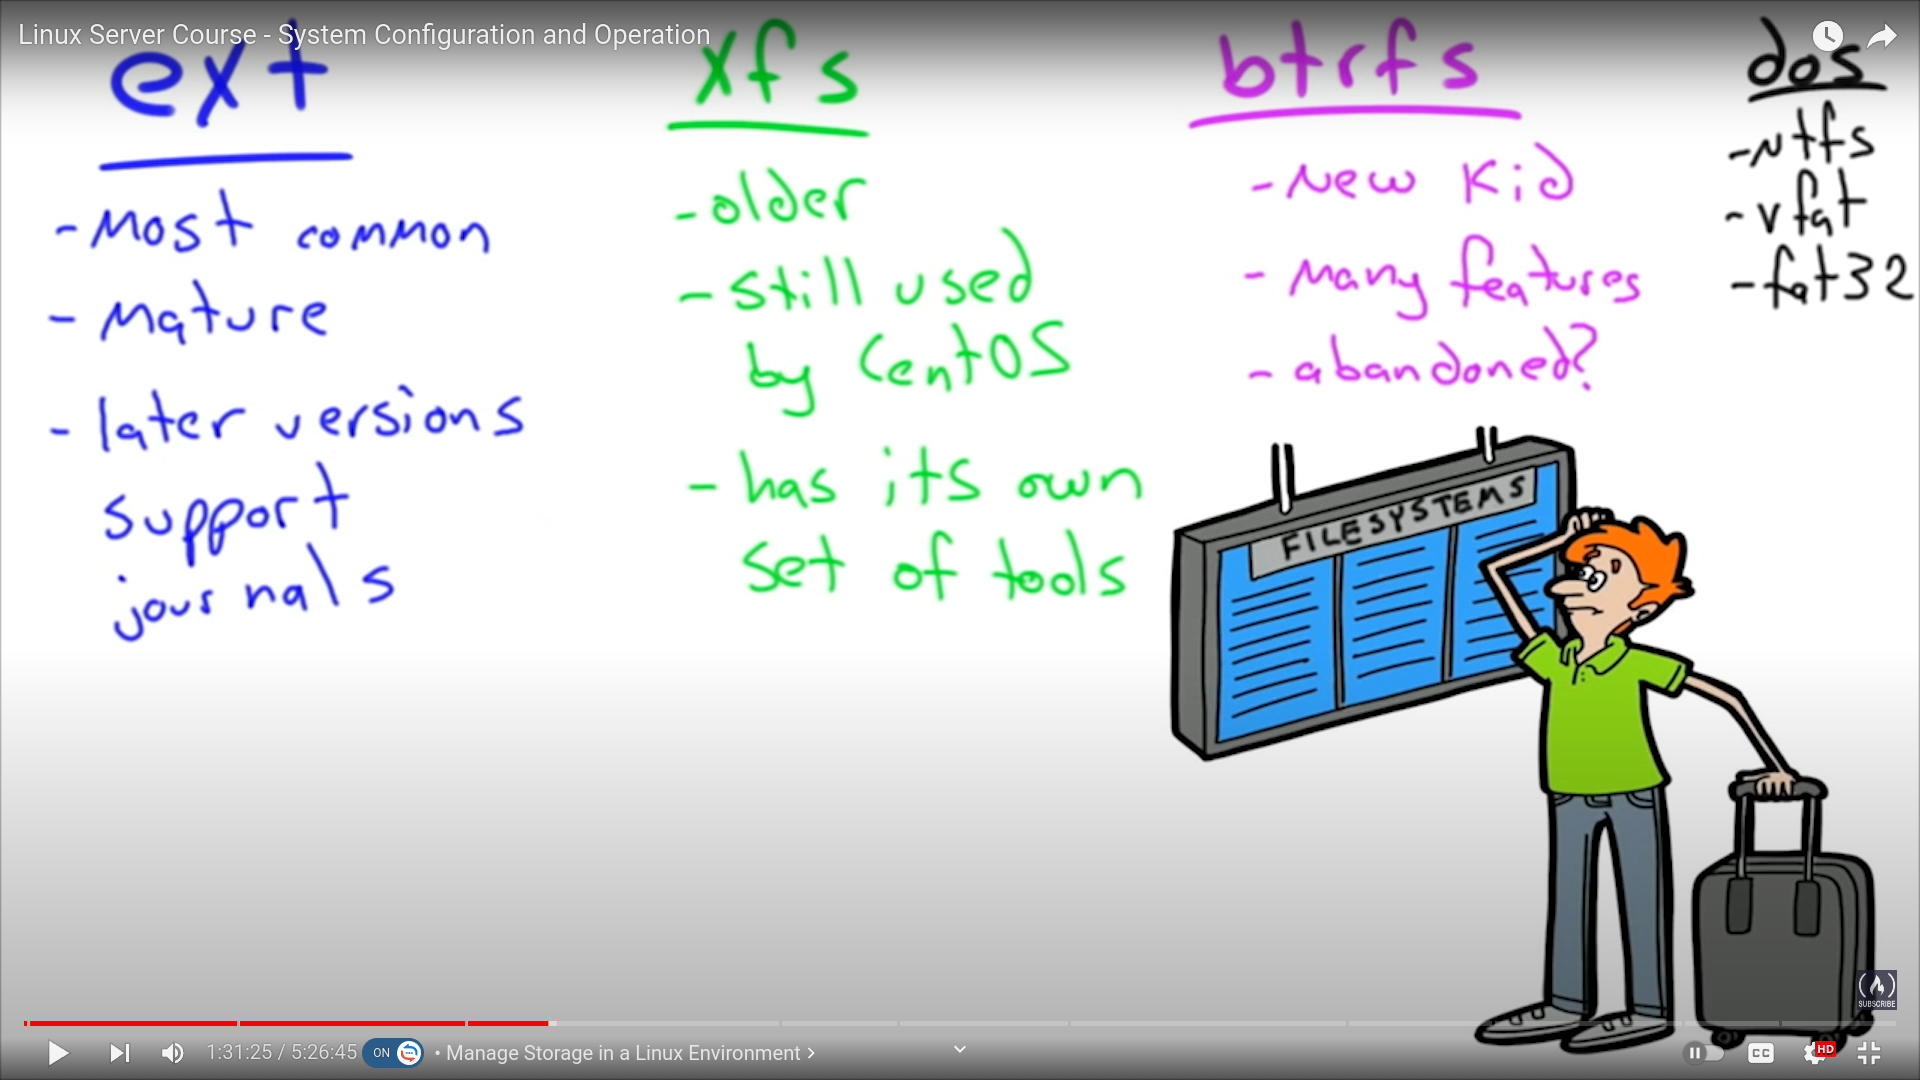 Linux Server Course - System Configuration and Operation
ext
- Most common
- Mature
- later versions
support
journals
xfs
- older
- still used
by CentOS
- has its own
set of tools
btrfs
- New Kid
- Many features
- abandoned?
dos
- ntfs
- vfat
- fat32
FILESYSTEMS
SUBSCRIBE
1:31:25 / 5:26:45
ON
• Manage Storage in a Linux Environment >
CC
HD